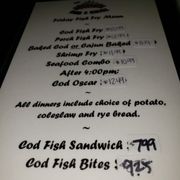 Friday Fish Fry Menu
Cod Fish Fry
Perch Fish Fry
Baked Cod or Cajun Baked
Shrimp Fry
Seafood Combo
After 4:00pm:
Cod Oscar
~
All dinners include choice of potato,
coleslaw and rye bread.
~
Cod Fish Sandwich 7.99
Cod Fish Bites 9.25